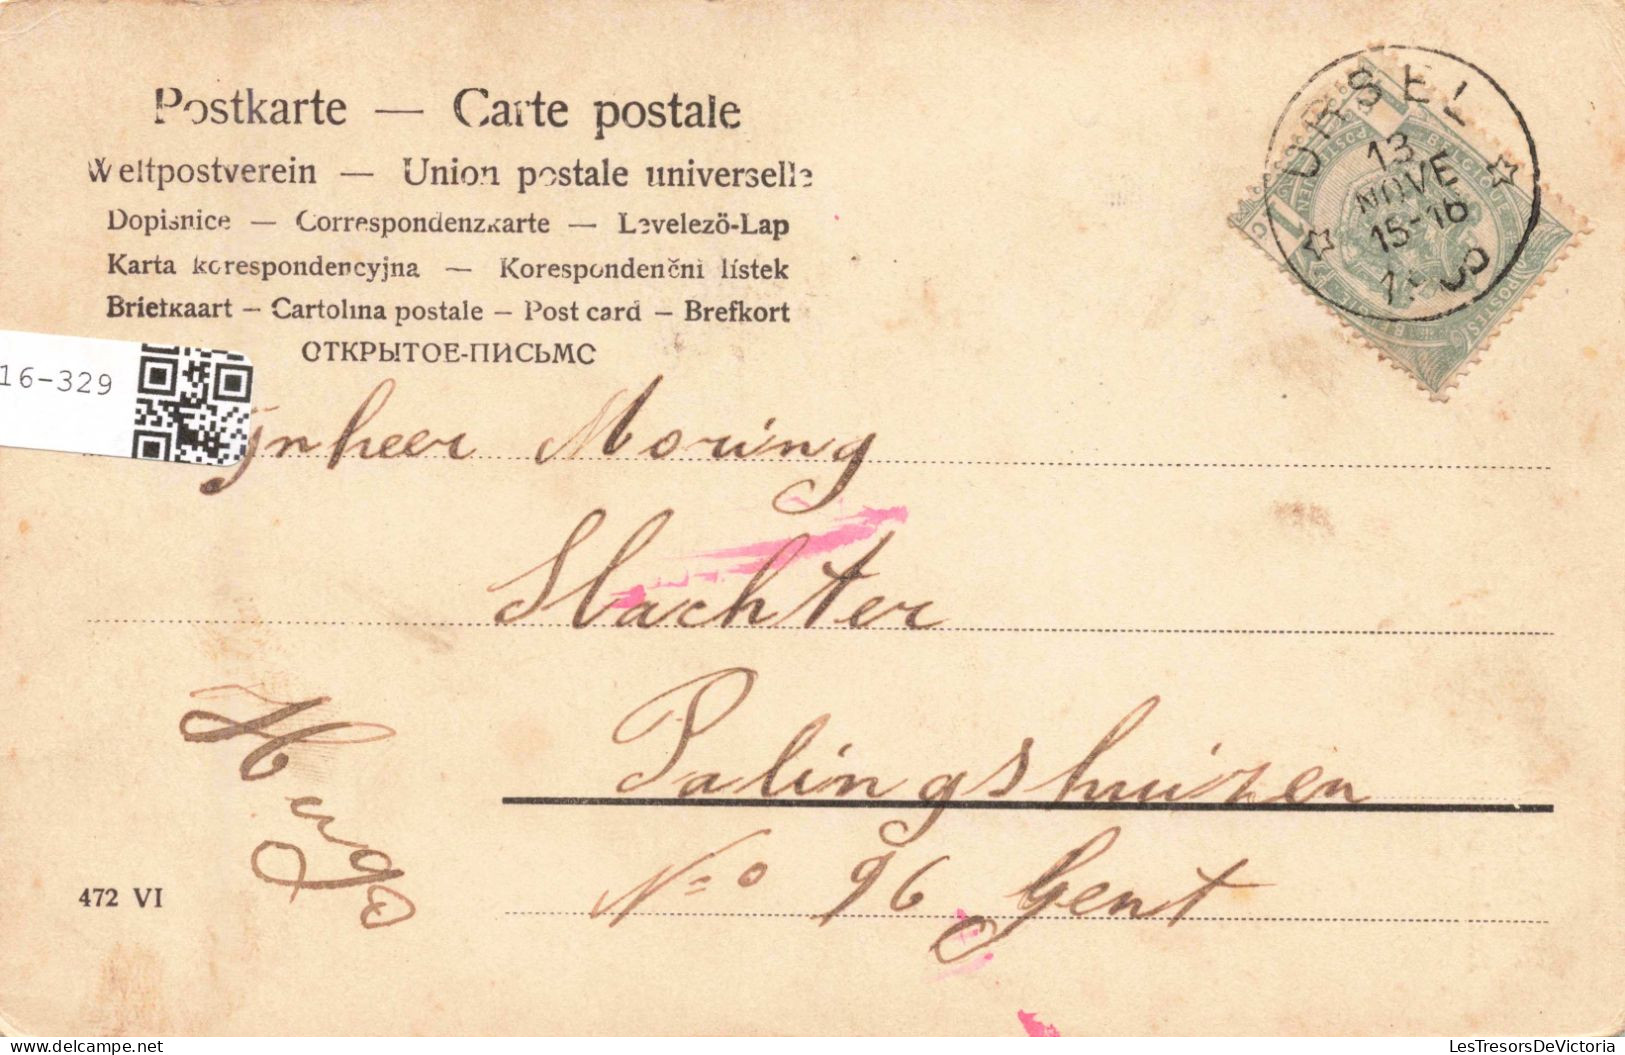 Postkarte — Carte postale
Weltpostverein — Union postale universelle
Dopisnice — Correspondenzkarte — Levelező-Lap
Karta korespondencyjna — Korespondenční lístek
Briefkaart — Cartolina postale — Post card — Brefkort
ОТКРЫТОЕ-ПИСЬМО
URSEL
13
NOVE
15-16
BELGIQUE
POSTES
16-329
ynheer Moring
Slachter
Palingshuizen
No 96 Gent
Hugo
472 VI
LesTresorsDeVictoria.com